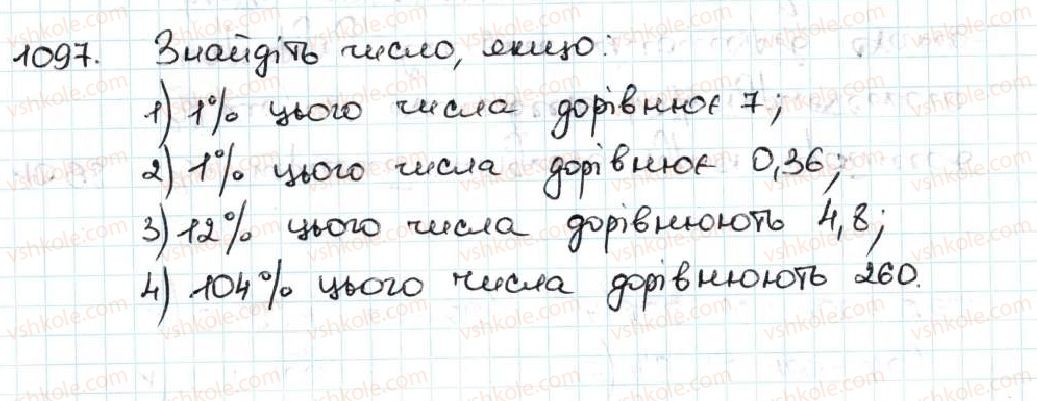 1097. Знайдіть число, якщо:
1) 1% цього числа дорівнює 7;
2) 1% цього числа дорівнює 0,36;
3) 12% цього числа дорівнюють 4,8;
4) 104% цього числа дорівнюють 260.